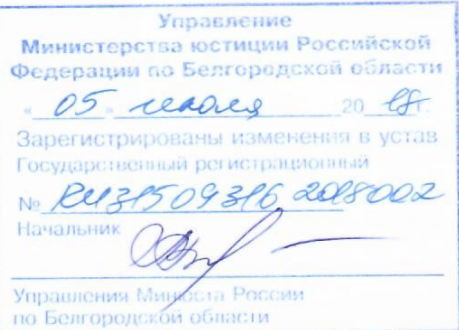 Управление
Министерства юстиции Российской
Федерации по Белгородской области
« 05 » июля 20 18 г.
Зарегистрированы изменения в устав
Государственный регистрационный
№ RU315093162018002
Начальник
Управления Минюста России
по Белгородской области